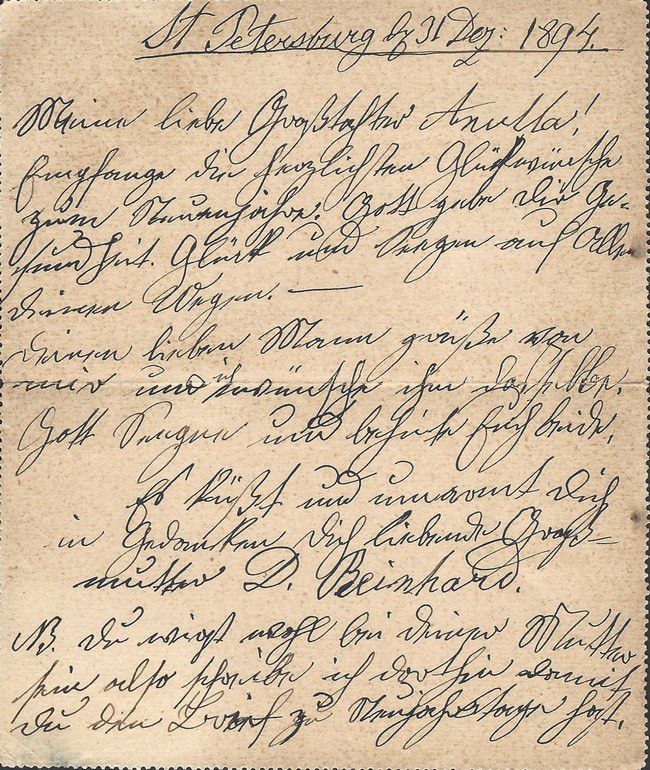 St Petersburg d 31 Dez: 1894.
Meine liebe Großtochter Anutta!
Empfange die herzlichsten Glückwünsche
zum Neuenjahre. Gott gebe Dir Ge-
sundheit. Glück und Seegen auf Allen
deinen Wegen. —
Deinen lieben Mann grüße von
mir und ich wünsche ihm dasselbe.
Gott Seegne und behüte Euch beide,
Es küßt und umarmt Dich
in Gedanken Dich liebende Groß-
mutter D. Beinhard.
NB. du wirst wohl bei deiner Mutter
sein also schreibe ich dorthin damit
du den Brief zu Neujahrstage hast.